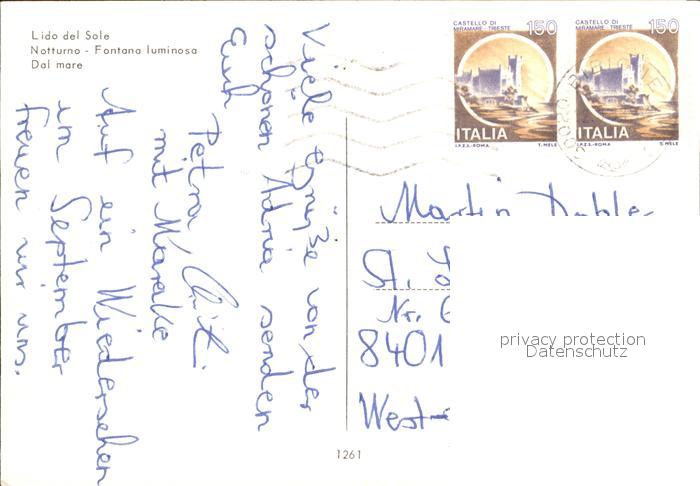 Lido del Sole
Notturno - Fontana luminosa
Dal mare
CASTELLO DI
MIRAMARE - TRIESTE
150
ITALIA
I.P.Z.S.-ROMA
T. MELE
CASTELLO DI
MIRAMARE - TRIESTE
150
ITALIA
I.P.Z.S.-ROMA
T. MELE
Viele Grüße von der
schönen Adria senden
Euch
Petra
mit
Auf ein Wiedersehen
im September
freuen wir uns.
Martin
St.
Nr.
8401
West-
privacy protection
Datenschutz
1261